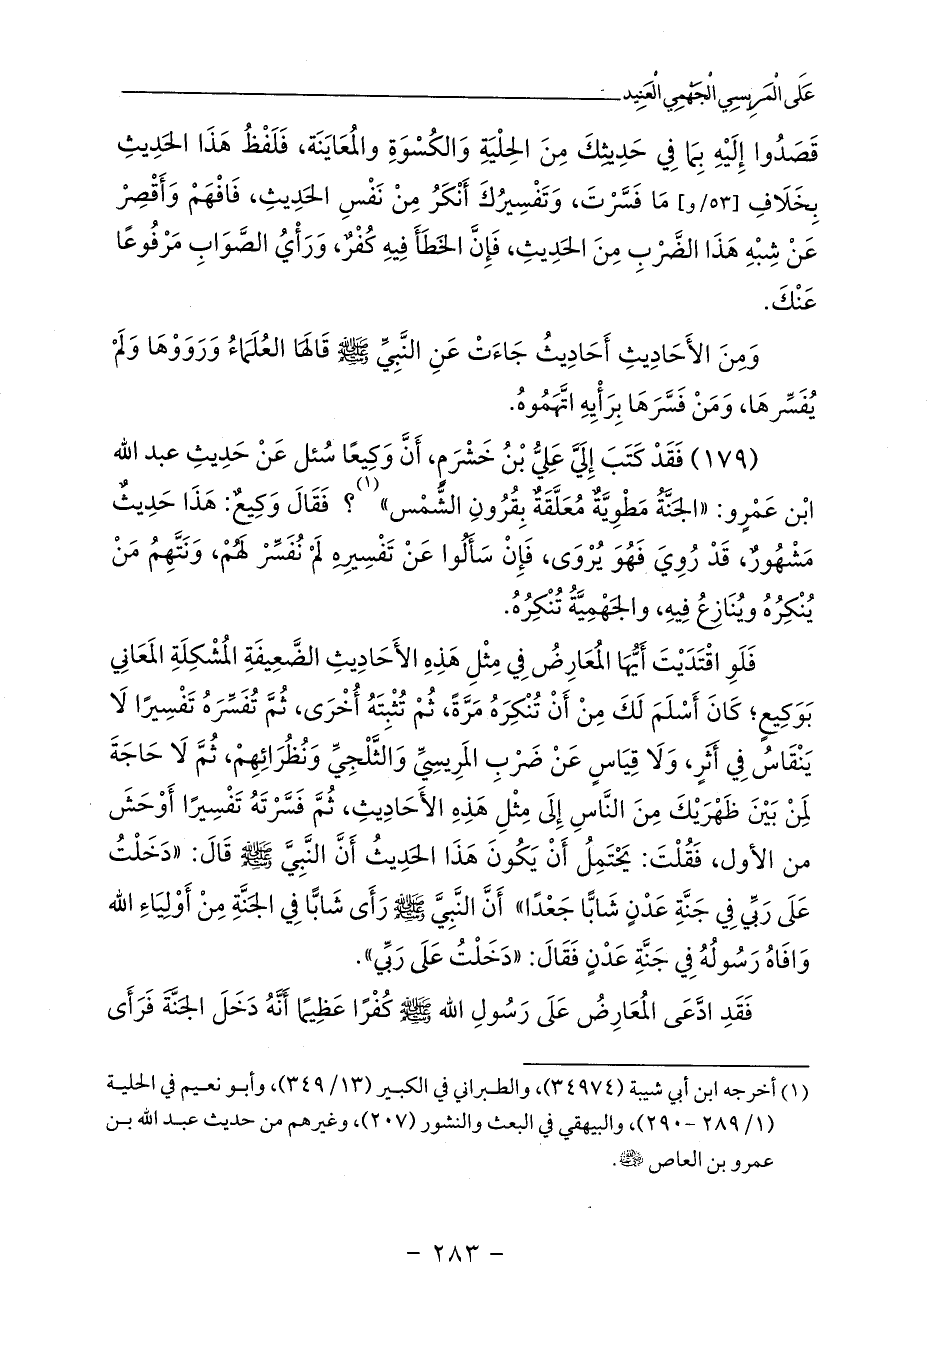 عَلَى الْمَرِيسِي الْجَهْمِي الْعَنِيد
قَصَدُوا إِلَيْهِ بِمَا فِي حَدِيثِكَ مِنَ الحِلْيَةِ وَالكُسْوَةِ والْمُعَايَنَة، فَلَفْظُ هَذَا الحَدِيثِ
بِخَلَافِ [٥٣/و] مَا فَسَّرْتَ، وَتَفْسِيرُكَ أَنْكَرُ مِنْ نَفْسِ الحَدِيثِ، فَافْهَمْ وَأَقْصِرْ
عَنْ شِبْهِ هَذَا الضَّرْبِ مِنَ الحَدِيثِ، فَإِنَّ الخَطَأَ فِيهِ كُفْرٌ، وَرَأْيُ الصَّوَابِ مَرْفُوعًا
عَنْكَ.
وَمِنَ الأَحَادِيثِ أَحَادِيثُ جَاءَتْ عَنِ النَّبِيِّ ﷺ قَالَهَا العُلَمَاءُ وَرَوَوْهَا وَلَمْ
يُفَسِّرهَا، وَمَنْ فَسَّرَهَا بِرَأْيِهِ اتَّهَمُوهُ.
(١٧٩) فَقَدْ كَتَبَ إِلَيَّ عَلِيُّ بْنُ خَشْرَمٍ، أَنَّ وَكِيعًا سُئل عَنْ حَدِيثِ عبد الله
ابْن عَمْرٍو: «الجَنَّةُ مَطْوِيَّةٌ مُعَلَّقَةٌ بِقُرُونِ الشَّمْس»(١)؟ فَقَالَ وَكِيعٌ: هَذَا حَدِيثٌ
مَشْهُورٌ، قَدْ رُوِيَ فَهُوَ يُرْوَى، فَإِنْ سَأَلُوا عَنْ تَفْسِيرِهِ لَمْ نُفَسِّرْ لَهُمْ، وَنَتَّهِمُ مَنْ
يُنْكِرُهُ ويُنَازِعُ فِيهِ، والجَهْمِيَّةُ تُنْكِرُهُ.
فَلَوِ اقْتَدَيْتَ أَيُّهَا الْمُعَارِضُ فِي مِثْلِ هَذِهِ الأَحَادِيثِ الضَّعِيفَةِ الْمُشْكِلَةِ الْمَعَانِي
بَوَكِيعٍ؛ كَانَ أَسْلَمَ لَكَ مِنْ أَنْ تُنْكِرَهُ مَرَّةً، ثُمْ تُثْبِتَهُ أُخْرَى، ثُمَّ تُفَسِّرَهُ تَفْسِيرًا لَا
يَنْقَاسُ فِي أَثَرٍ، وَلَا قِيَاسٍ عَنْ ضَرْبِ المَرِيسِيِّ وَالثَّلْجِيِّ وَنُظَرَائِهِمْ، ثُمَّ لَا حَاجَةَ
لِمَنْ بَيْنَ ظَهْرَيْكَ مِنَ النَّاسِ إِلَى مِثْلِ هَذِهِ الأَحَادِيثِ، ثُمَّ فَسَّرْتَهُ تَفْسِيرًا أَوْحَشَ
من الأول، فَقُلْتَ: يَحْتَمِلُ أَنْ يَكُونَ هَذَا الحَدِيثُ أَنَّ النَّبِيَّ ﷺ قَالَ: «دَخَلْتُ
عَلَى رَبِّي فِي جَنَّةِ عَدْنٍ شَابًّا جَعْدًا» أَنَّ النَّبِيَّ ﷺ رَأَى شَابًّا فِي الجَنَّةِ مِنْ أَوْلِيَاءِ الله
وَافَاهُ رَسُولُهُ فِي جَنَّةِ عَدْنٍ فَقَالَ: «دَخَلْتُ عَلَى رَبِّي».
فَقَدِ ادَّعَى الْمُعَارِضُ عَلَى رَسُولِ الله ﷺ كُفْرًا عَظِيمًا أَنَّهُ دَخَلَ الجَنَّةَ فَرَأَى
(١) أخرجه ابن أبي شيبة (٣٤٩٧٤)، والطبراني في الكبير (١٣/ ٣٤٩)، وأبو نعيم في الحلية
(١/ ٢٨٩ -٢٩٠)، والبيهقي في البعث والنشور (٢٠٧)، وغيرهم من حديث عبد الله بن
عمرو بن العاص ﷺ.
- ٢٨٣ -